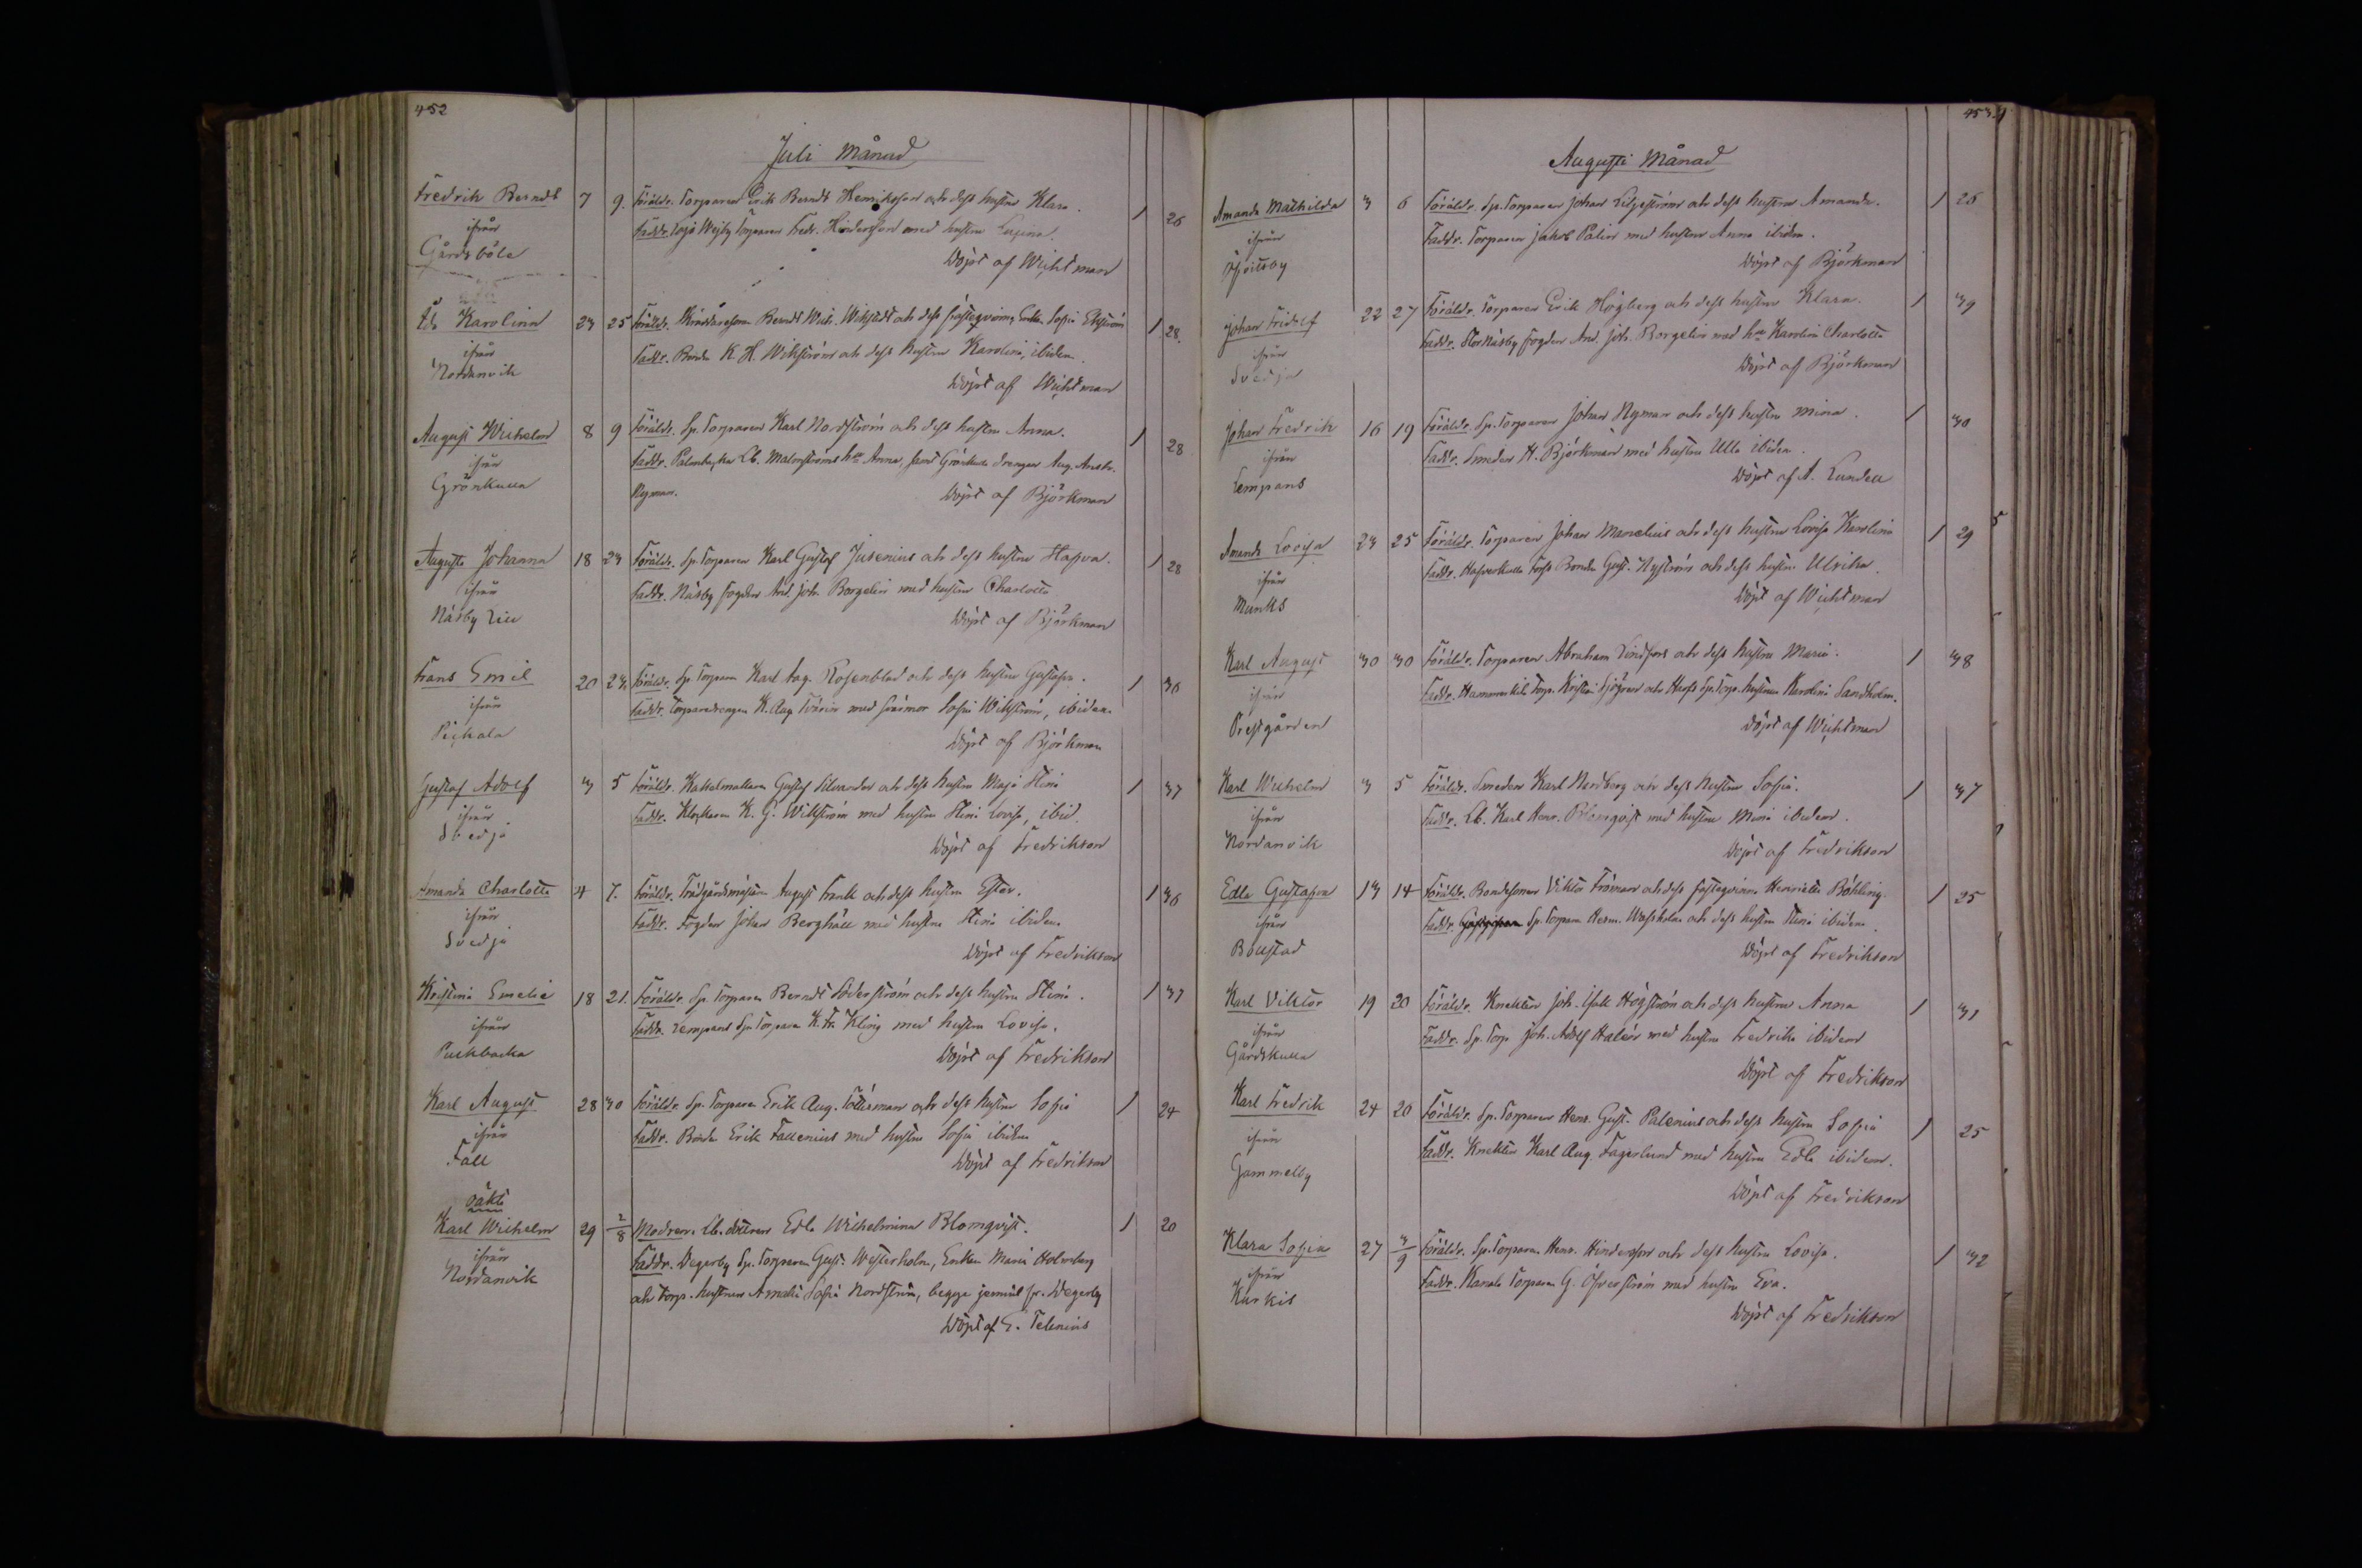 452
Juli Månad
Fredrik Berndt 7 9. Föräldr. Torparen Erik Berndt Henriksson och dess hustru Klara. 1 26
ifrån Faddr. Torparen Fredr. Hindersson med hustru
Gårdsböle Döpt af Wichtman
Ida Karolina 23 25 Föräldr. Berndt Wilh. och dess fästeqvinna, Enka Sofia Ekström 1 28.
ifrån Faddr. Bonden K. H. Wikström och dess hustru Karolina, ibidem.
Nordanvik Döpt af Wichtman
August Wilhelm 8 9 Föräldr. Sp. Torparen Karl Nordström och dess hustru Anna. 1 28
ifrån Faddr. Lb. Malmströms h:u Anna, samt Grönkulla drengen Aug. Ansh.
Grönkulla Nyman. Döpt af Björkman
Augusta Johanna 18 23 Föräldr. Sp. Torparen Karl Gustaf Jusenius och dess hustru 1 28
ifrån Faddr. Näsby fogden And. Joh. Borgelin med hustru Charlotta
Näsby Lill Döpt af Björkman
Frans Emil 20 23. Föräldr. Sp. Torparen Karl Aug. Rosenblad och dess hustru Gustafva. 1 36
ifrån Faddr. Torparedrengen K. Aug. med Sofia Wikström, ibidem.
Pickala Döpt af Björkman
Gustaf Adolf 3 5 Föräldr. Kakelmakaren Gustaf Silvander och dess hustru Maja Stina 1 37
ifrån Faddr. Klockaren K. G. Wikström med hustru Stina Lovisa, ibid.
Svedja Döpt af Fredrikson
Amanda Charlotta 4 7. Föräldr. Trädgårdsmästaren August Frank och dess hustru Ester. 1 36
ifrån Faddr. Fogden Johan Berghäll med hustru Stina ibidem.
Svedja Döpt af Fredrikson
Kristina Emelie 18 21. Föräldr. Sp. Torparen Berndt Söderström och dess hustru Stina. 1 37
ifrån Faddr. Lempans Sp. Torparen K. Fr. Kling med hustru Lovisa.
Purkbacka Döpt af Fredrikson
Karl August 28 30 Föräldr. Sp. Torparen Erik Aug. Tötterman och dess hustru Sofia 1 24
ifrån Faddr. Bonden Erik Fallenius med hustru Sofia ibidem
Fall Döpt af Fredrikson
oäkta
Karl Wilhelm 29 2/8 Modren. Lb. dottren Edla Wilhelmina Blomqvist. 1 20
ifrån Faddr. Degerby Sp. Torparen Gust. Westerholm, Enkan Maria Holmberg
Nordanvik och Torp. hustrun Amalia Sofia Nordström, begge jemväl fr. Degerby
Döpt af G. Telenius
453.
Augusti Månad
Amanda Mathilda 3 6 Föräldr. Sp. Torparen Johan Liljeström och dess hustru Amanda. 1 26
ifrån Faddr. Torparen Jakob Palin med hustru Anna ibidem.
Öfvitsby Döpt af Björkman
Johan Fridolf 22 27 Föräldr. Torparen Erik Högberg och dess hustru Klara. 1 39
ifrån Faddr. Stor Näsby fogden And. Joh. Borgelin med h:u Karolina Charlotta
Svedja Döpt af Björkman
Johan Fredrik 16 19 Föräldr. Sp. Torparen Johan Nyman och dess hustru Mina. 1 30
ifrån Faddr. Smeden H. Björkman med hustru Ulla ibidem.
Lempans Döpt af A. Lundell
Amanda Lovisa 23 25 Föräldr. Torparen Johan Marcelius och dess hustru Lovisa Karolina 1 29
ifrån Faddr. Bonden Gust. Nyström och dess hustru Ulrika.
Munks Döpt af Wichtman
Karl August 30 30 Föräldr. Torparen Abraham Lindfors och dess hustru Maria. 1 38
ifrån Faddr. Hammarskils Torp. Kristian Sjögren och Sp. Torp. hustrun Karolina Sandholm.
Prestgården Döpt af Wichtman
Karl Wilhelm 3 5 Föräldr. Smeden Karl Nordberg och dess hustru Sofia. 1 37
ifrån Faddr. Lb. Karl Henr. Blomqvist med hustru Mina ibidem.
Nordanvik Döpt af Fredrikson
Edla Gustafva 13 14 Föräldr. Bondesonen Viktor Fröman och dess fästeqvinna Henrietta Böhling. 1 25
ifrån Faddr. Sp. Torparen Herm. Wassholm och dess hustru Stina ibidem.
Boustad Döpt af Fredrikson
Karl Viktor 19 20 Föräldr. Knekten Joh. Isak Högström och dess hustru Anna 1 31
ifrån Faddr. Sp. Torp. Joh. Adolf Halén med hustru Fredrika ibidem
Gårdskulla Döpt af Fredrikson
Karl Fredrik 24 20 Föräldr. Sp. Torparen Henr. Gust. Palenius och dess hustru Sofia 1 25
ifrån Faddr. Knekten Karl Aug. Fagerlund med hustru Edla ibidem.
Gammelby Döpt af Fredrikson
Klara Sofia 27 3/9 Föräldr. Sp. Torparen Henr. Hindersson och dess hustru Lovisa. 1 32
ifrån Faddr. Karala Torparen G. Öfverström med hustru Eva.
Kurkis Döpt af Fredrikson